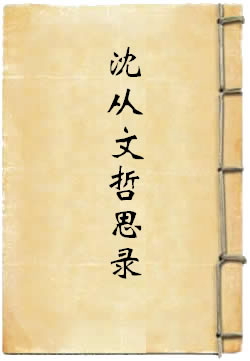 沈从文哲思录